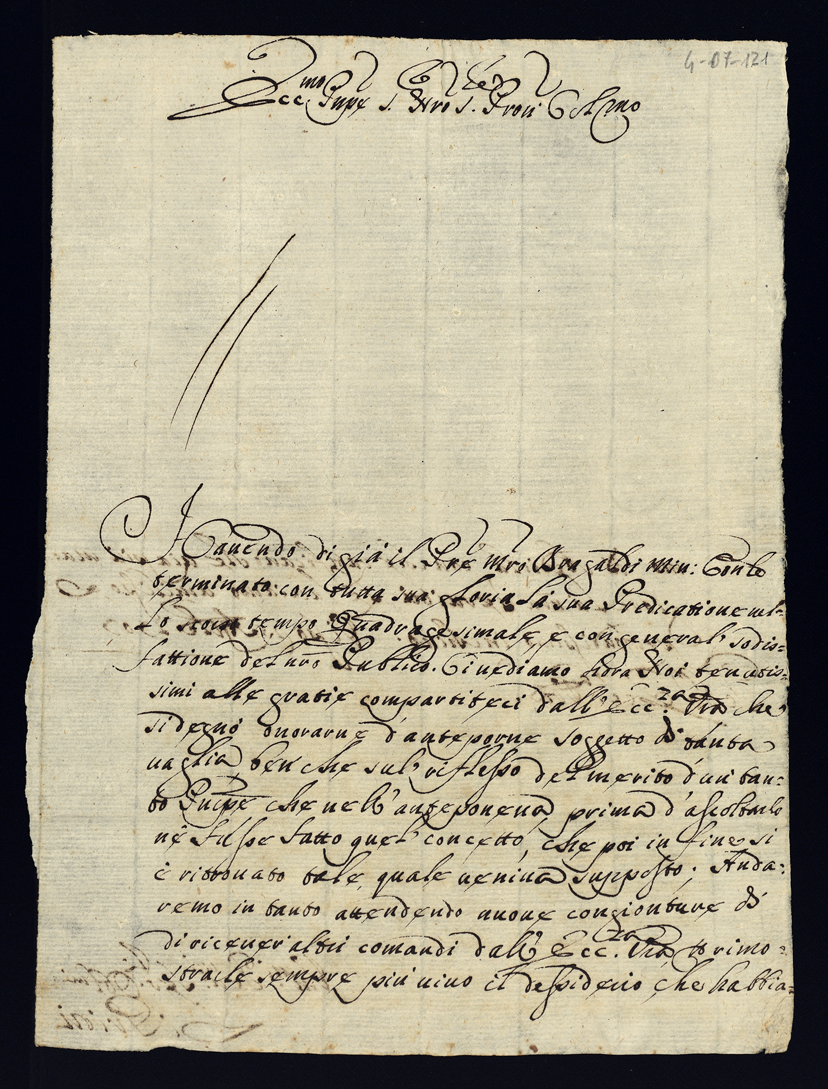 4-07-121
Ecc.mo Pnpe S. Nro S. Pron Col.mo
Havendo di già il Pre Mro Bragaldi Min: Conle
terminato con tutta sua gloria la sua Predicatione nel-
lo scorso tempo Quadragesimale, e con general sodis-
fattione del nro Publico. Ci vediamo hora Noi tenutis-
simi alle gratie compartiteci dall'Ecc.za Vra che
si degnò onorarne d'anteporne soggetto di tanta
vaglia, ben che sul riflesso del merito d'un tan-
to Pnipe, che nell'anteponerà, prima d'ascoltarlo
nè fusse fatto quel concetto, che poi in fine si
è ritrovato tale, quale veniva supposto. Anda-
remo in tanto attendendo nuove congionture di
di ricever altri comandi dall'Ecc.za Vra p rimo-
strarle sempre più vivo il desiderio che habbia-